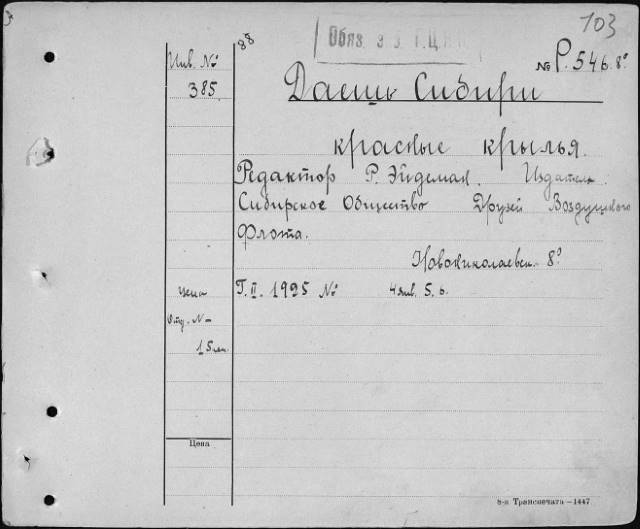 103
Обяз. э
88
Инв. №
385
№ Р. 546. 8º
Даешь Сибири
красные крылья.
Редактор Р. Эйдеман. Издатель
Сибирское Общество Друзей Воздушного
Флота.
Новониколаевск. 8º
цена
Отд. №
15 коп.
Г. II. 1925 № 4 янв. 5. 6.
Цена
8-я Транспечать—1447